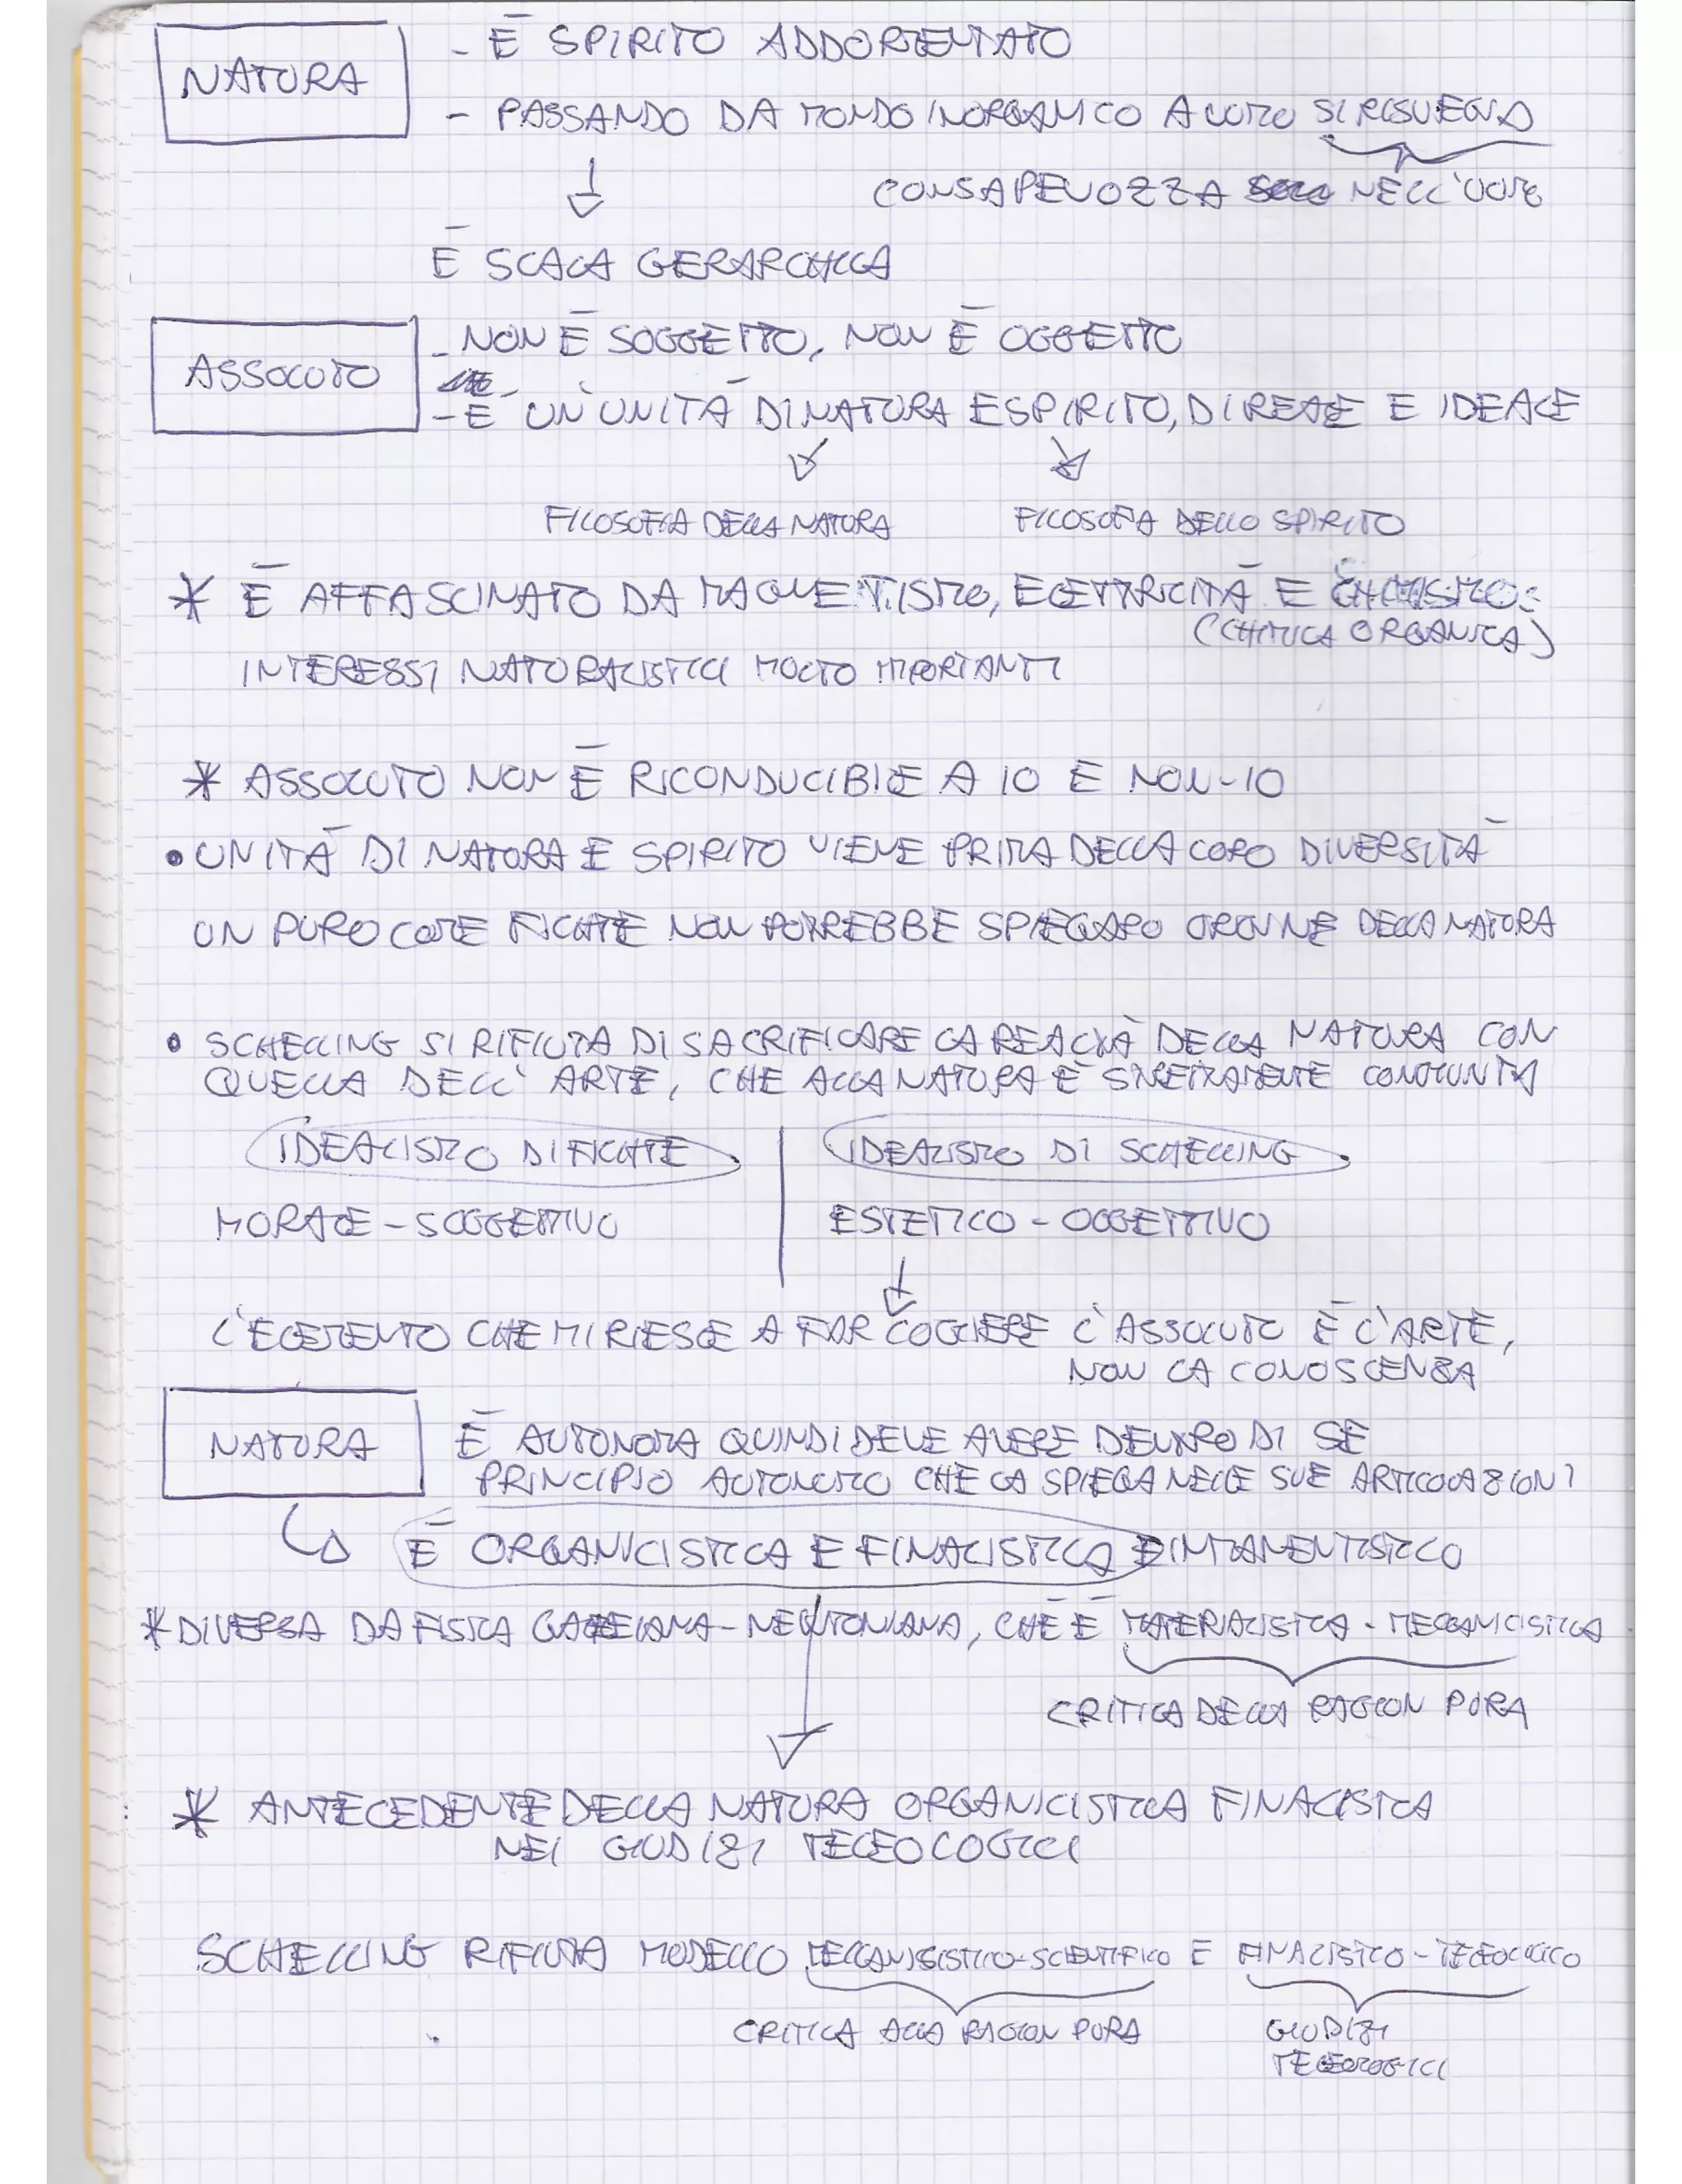 NATURA
- È SPIRITO ADDORMENTATO
- PASSANDO DA MONDO INORGANICO A UOMO SI RISVEGLIA
CONSAPEVOLEZZA NELL'UOMO
È SCALA GERARCHICA
ASSOLUTO
- NON È SOGGETTO, NON È OGGETTO
- È UN'UNITÀ DI NATURA E SPIRITO, DI REALE E IDEALE
FILOSOFIA DELLA NATURA FILOSOFIA DELLO SPIRITO
* È AFFASCINATO DA MAGNETISMO, ELETTRICITÀ E CHIMISMO:
(CHIMICA ORGANICA)
INTERESSI NATURALISTICI MOLTO IMPORTANTI
* ASSOLUTO NON È RICONDUCIBILE A IO E NON-IO
• UNITÀ DI NATURA E SPIRITO VIENE PRIMA DELLA LORO DIVERSITÀ
UN PURO COME FICHTE NON POTREBBE SPIEGARE ORIGINE DELLA NATURA
• SCHELLING SI RIFIUTA DI SACRIFICARE LA REALTÀ DELLA NATURA CON
QUELLA DELL'ARTE, CHE ALLA NATURA È STRETTAMENTE CONGIUNTA
IDEALISMO DI FICHTE IDEALISMO DI SCHELLING
MORALE - SOGGETTIVO ESTETICO - OGGETTIVO
L'ELEMENTO CHE MI RIESCE A FAR COGLIERE L'ASSOLUTO È L'ARTE,
NON LA CONOSCENZA
NATURA
È AUTONOMA QUINDI DEVE AVERE DENTRO DI SE
PRINCIPIO AUTONOMO CHE LA SPIEGA NELLE SUE ARTICOLAZIONI
È ORGANICISTICA E FINALISTICA E IMMANENTISTICO
* DIVERSA DA FISICA GALILEIANA-NEWTONIANA, CHE È MATERIALISTICA - MECCANICISTICA
CRITICA DELLA RAGION PURA
* ANTECEDENTE DELLA NATURA ORGANICISTICA FINALISTICA
NEI GIUDIZI TELEOLOGICI
SCHELLING RIFIUTA MODELLO MECCANICISTICO-SCIENTIFICO E FINALISTICO-TELEOLOGICO
CRITICA ALLA RAGION PURA GIUDIZI
TELEOLOGICI